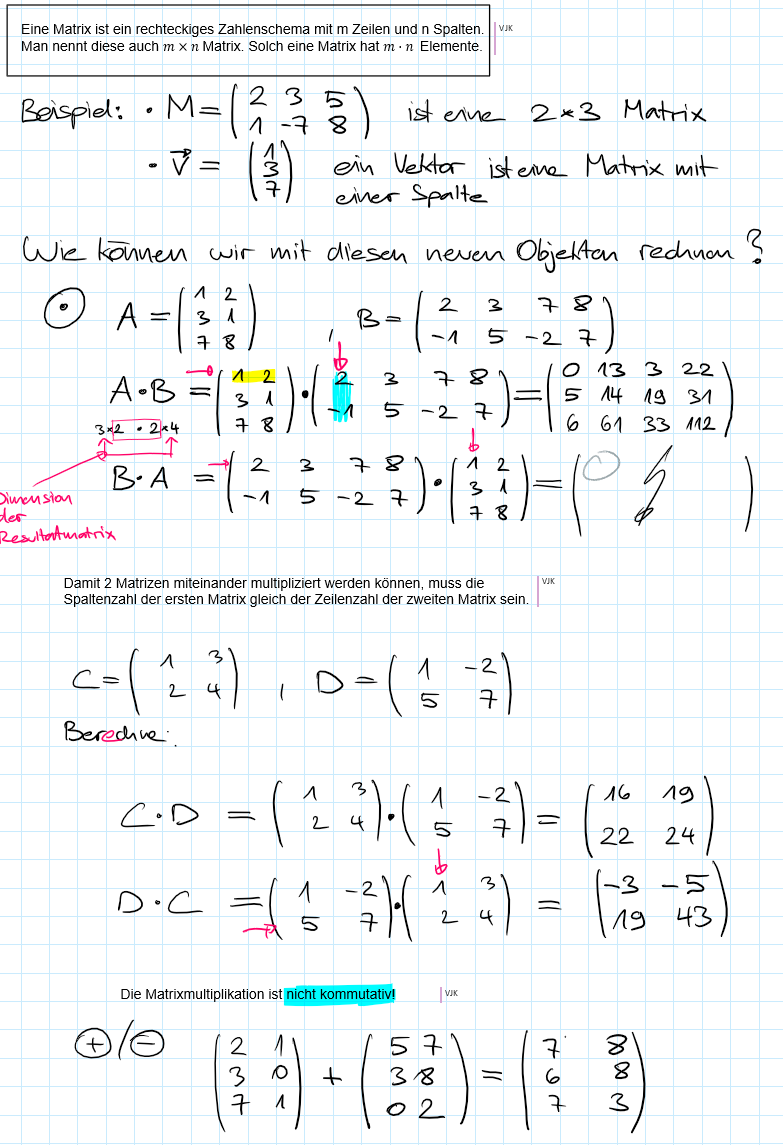 Eine Matrix ist ein rechteckiges Zahlenschema mit m Zeilen und n Spalten. VJK
Man nennt diese auch m × n Matrix. Solch eine Matrix hat m · n Elemente.
Beispiel: • M = ( 2 3 5 ist eine 2×3 Matrix
1 -7 8 )
• V⃗ = ( 1 ein Vektor ist eine Matrix mit
3
7 ) einer Spalte
Wie können wir mit diesen neuen Objekten rechnen?
⊙ A = ( 1 2 , B = ( 2 3 7 8
3 1 -1 5 -2 7 )
7 8 )
A·B = ( 1 2 · ( 2 3 7 8 = ( 0 13 3 22
3 1 -1 5 -2 7 ) 5 14 19 31
7 8 ) 6 61 33 112 )
3×2 · 2×4
B·A = ( 2 3 7 8 · ( 1 2 = ( )
-1 5 -2 7 ) 3 1
7 8 )
Dimension
der
Resultatmatrix
Damit 2 Matrizen miteinander multipliziert werden können, muss die VJK
Spaltenzahl der ersten Matrix gleich der Zeilenzahl der zweiten Matrix sein.
C = ( 1 3 , D = ( 1 -2
2 4 ) 5 7 )
Berechne:
C·D = ( 1 3 · ( 1 -2 = ( 16 19
2 4 ) 5 7 ) 22 24 )
D·C = ( 1 -2 · ( 1 3 = ( -3 -5
5 7 ) 2 4 ) 19 43 )
Die Matrixmultiplikation ist nicht kommutativ! VJK
⊕/⊖ ( 2 1 + ( 5 7 = ( 7 8
3 0 3 8 6 8
7 1 ) 0 2 ) 7 3 )